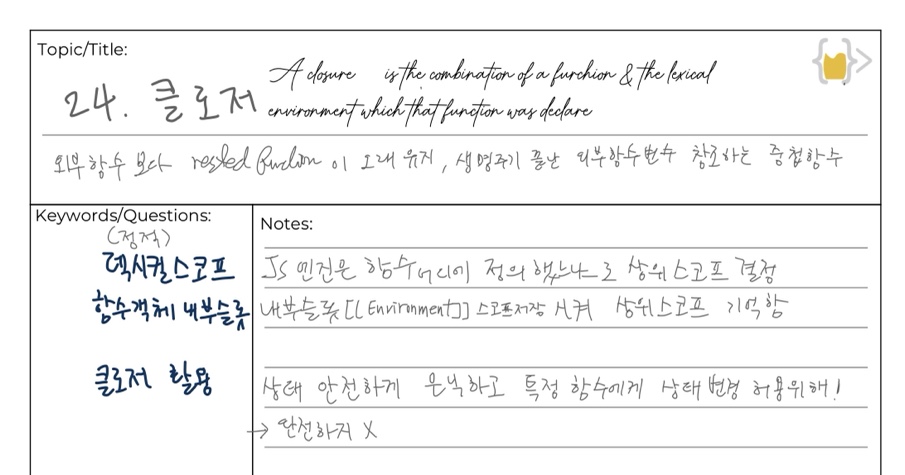 Topic/Title:
24. 클로저
A closure is the combination of a furchion & the lexical
environment which that function was declare
외부함수 보다 nested function 이 오래 유지, 생명주기 끝난 외부함수변수 참조하는 중첩함수
Keywords/Questions:
(정적)
렉시컬스코프
함수객체 내부슬롯
클로저 활용
Notes:
JS 엔진은 함수 어디에 정의 했느냐로 상위스코프 결정
내부슬롯 [[Environment]] 스코프저장 시켜 상위스코프 기억함
상태 안전하게 은닉하고 특정 함수에게 상태변경 허용위해!
→ 안전하지 X